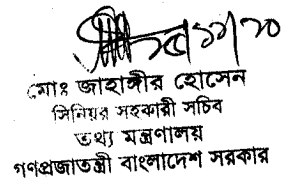 মোঃ জাহাঙ্গীর হোসেন
সিনিয়র সহকারী সচিব
তথ্য মন্ত্রণালয়
গণপ্রজাতন্ত্রী বাংলাদেশ সরকার